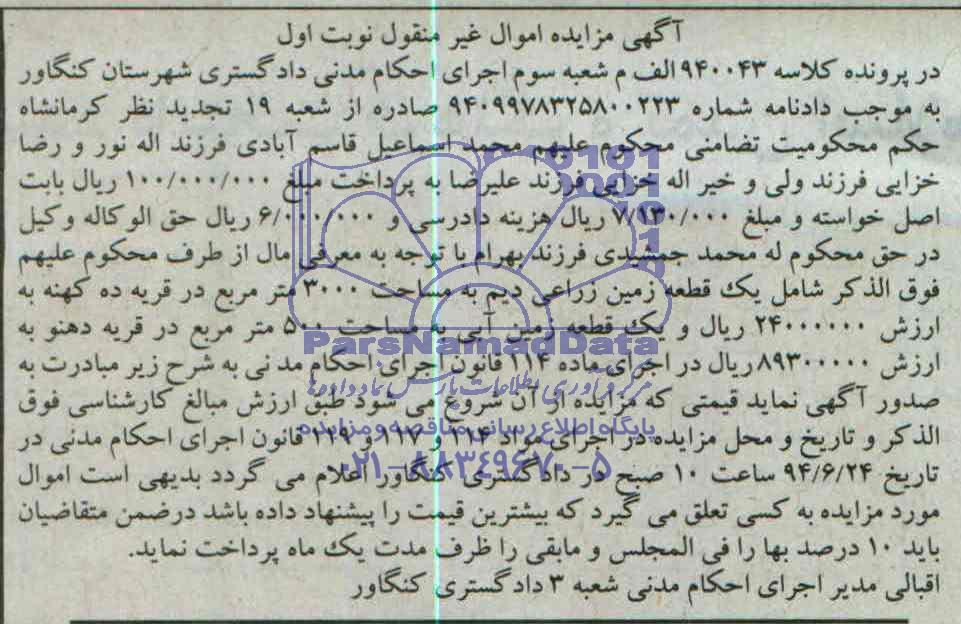 آگهی مزایده اموال غیر منقول نوبت اول
در پرونده کلاسه ۹۴۰۰۴۳ الف م شعبه سوم اجرای احکام مدنی دادگستری شهرستان کنگاور
به موجب دادنامه شماره ۹۴۰۹۹۷۸۳۲۵۸۰۰۲۲۳ صادره از شعبه ۱۹ تجدید نظر کرمانشاه
حکم محکومیت تضامنی محکوم علیهم محمد اسماعیل قاسم آبادی فرزند اله نور و رضا
خزایی فرزند ولی و خیر اله خزایی فرزند علیرضا به پرداخت مبلغ ۱۰۰/۰۰۰/۰۰۰ ریال بابت
اصل خواسته و مبلغ ۷/۱۳۰/۰۰۰ ریال هزینه دادرسی و ۶/۰۰۰/۰۰۰ ریال حق الو کاله وکیل
در حق محکوم له محمد جمشیدی فرزند بهرام با توجه به معرفی مال از طرف محکوم علیهم
فوق الذکر شامل یک قطعه زمین زراعی دیم به مساحت ۳۰۰۰ متر مربع در قریه ده کهنه به
ارزش ۲۴۰۰۰۰۰۰ ریال و یک قطعه زمین آبی به مساحت ۵۰۰ متر مربع در قریه دهنو به
ParsNamadData
ارزش ۸۹۳۰۰۰۰۰ ریال در اجرای ماده ۱۱۴ قانون اجرای احکام مدنی به شرح زیر مبادرت به
مرکز فرآوری اطلاعات پارس نماد داده ها
صدور آگهی نماید قیمتی که مزایده از آن شروع می شود طبق ارزش مبالغ کارشناسی فوق
پایگاه اطلاع رسانی مناقصه و مزایده
الذکر و تاریخ و محل مزایده در اجرای مواد ۱۱۴ و ۱۱۷ و ۱۱۹ قانون اجرای احکام مدنی در
۰۲۱-۸۸۳۴۹۶۷۰-۵
تاریخ ۹۴/۶/۲۴ ساعت ۱۰ صبح در دادگستری کنگاور اعلام می گردد بدیهی است اموال
مورد مزایده به کسی تعلق می گیرد که بیشترین قیمت را پیشنهاد داده باشد درضمن متقاضیان
باید ۱۰ درصد بها را فی المجلس و مابقی را ظرف مدت یک ماه پرداخت نماید.
اقبالی مدیر اجرای احکام مدنی شعبه ۳ دادگستری کنگاور